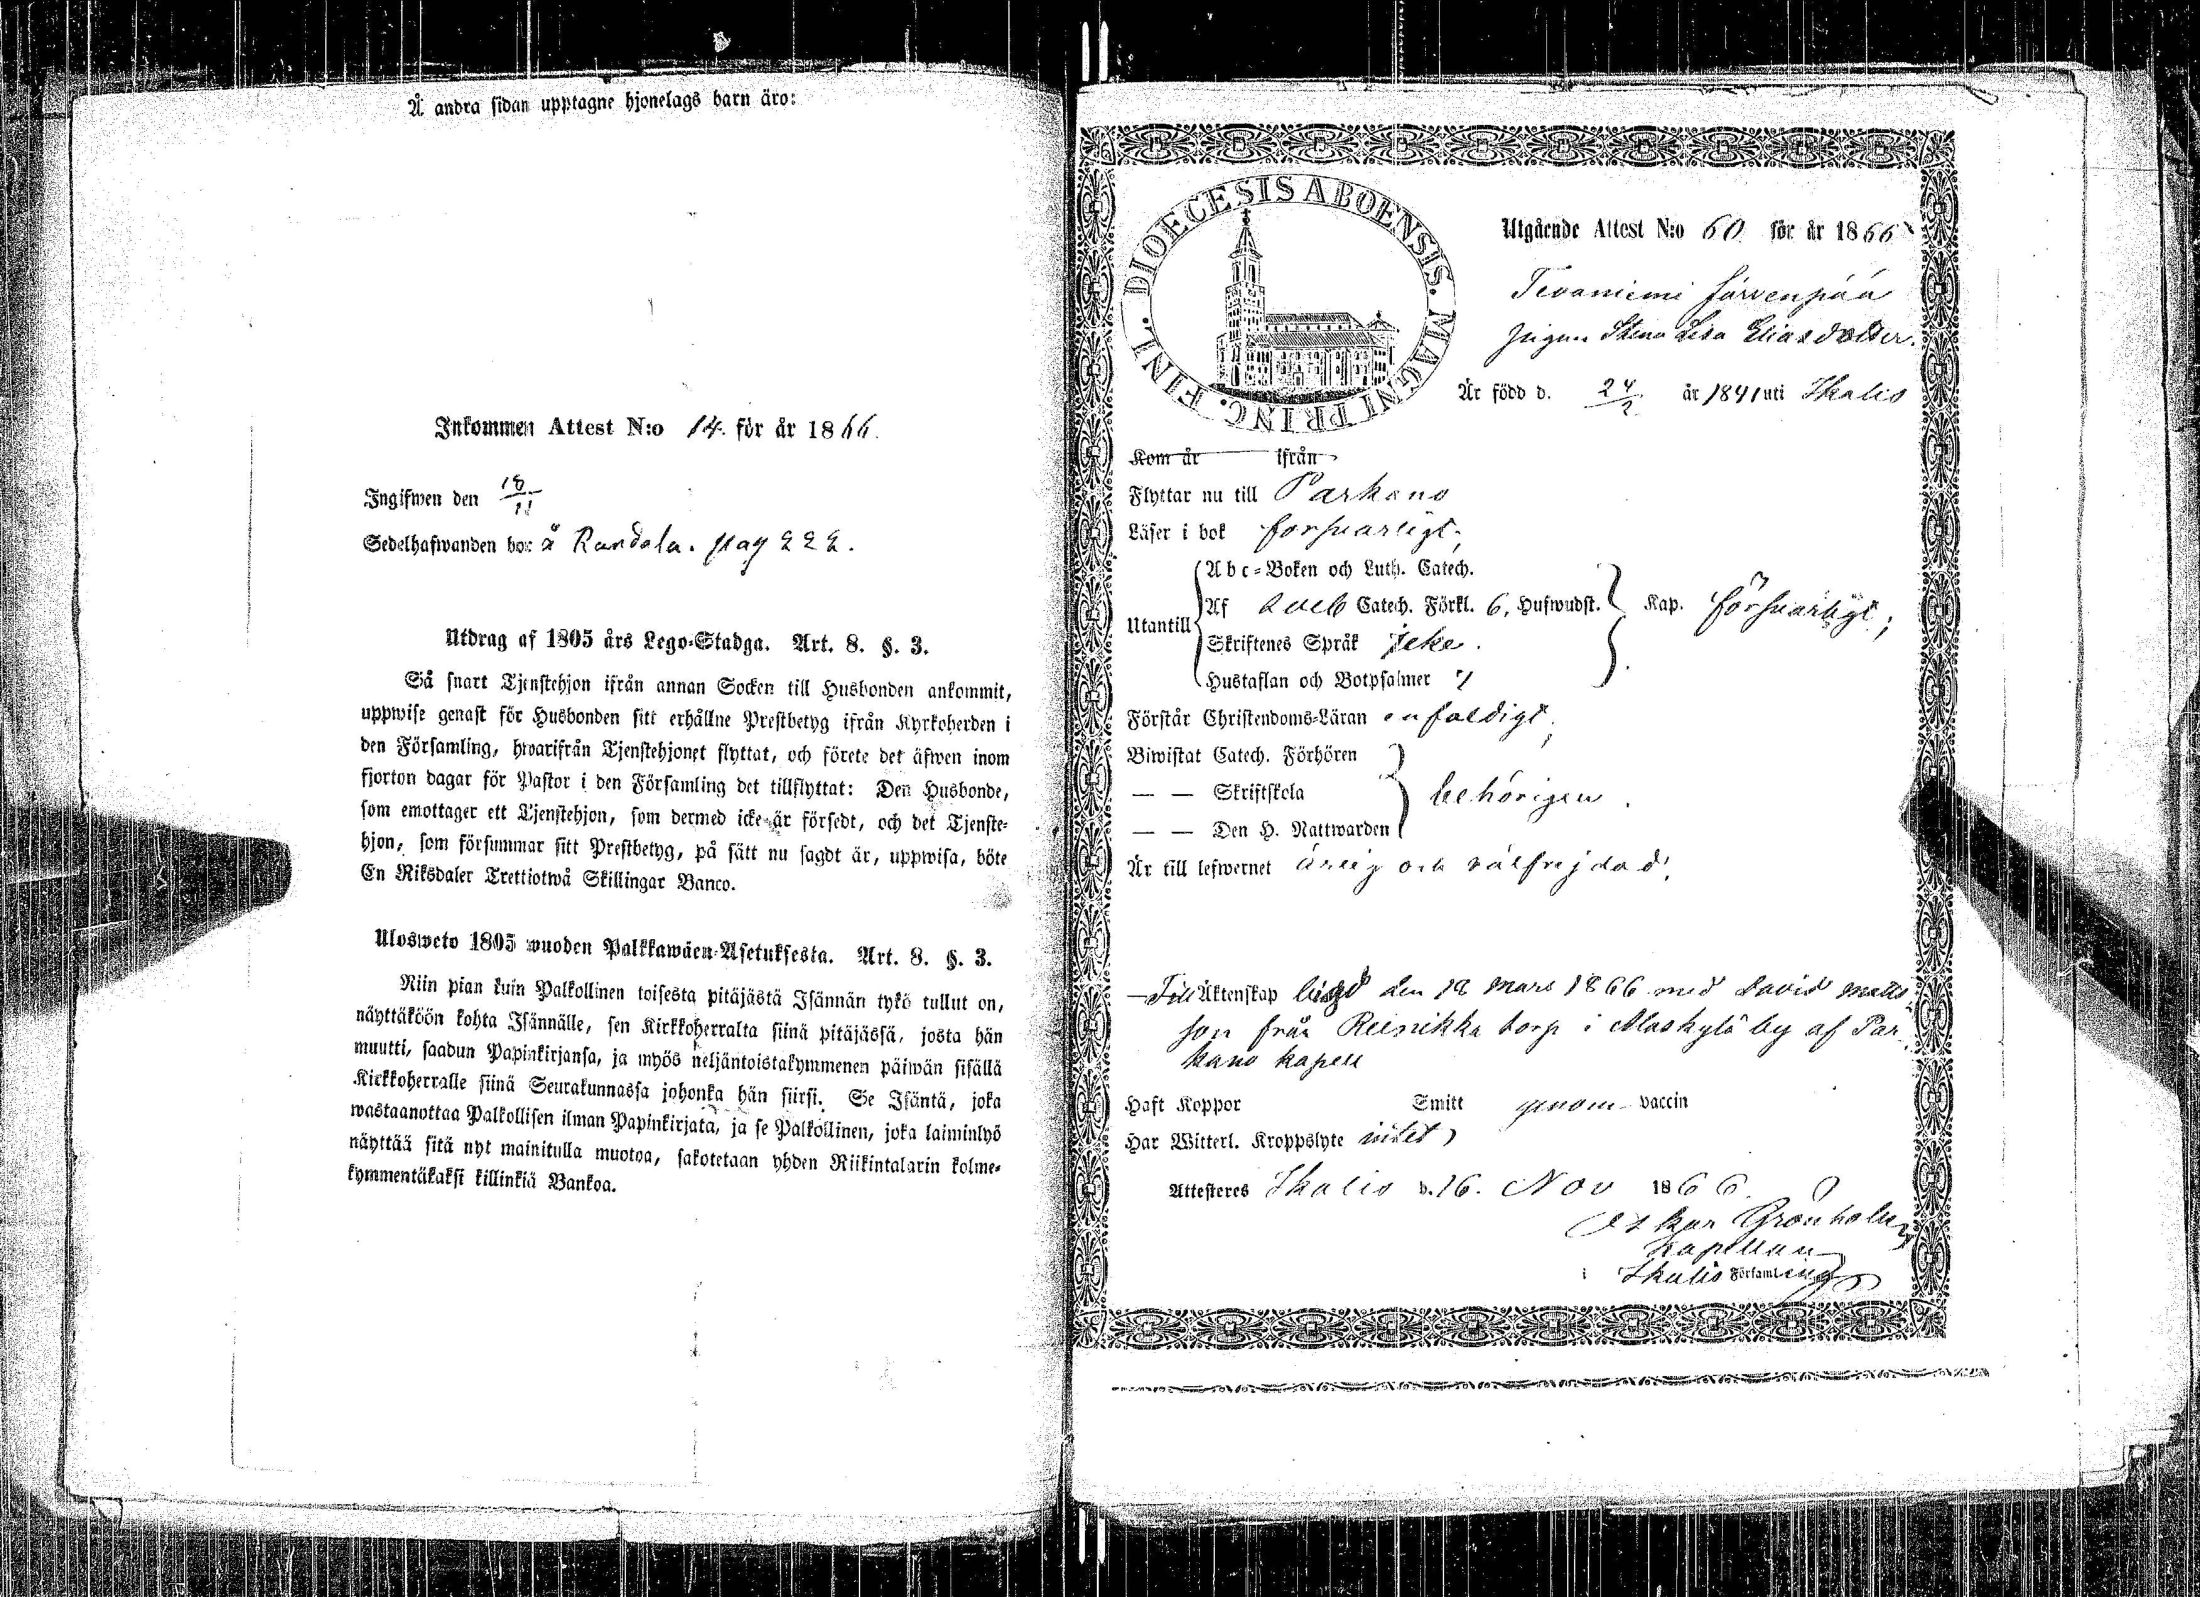 Å andra sidan upptagne hjonelags barn äro:
Inkommen Attest N:o 14. för år 1866.
Ingifwen den 18/11
Sedelhafwanden bor å Randala. pag 222.
Utdrag af 1805 års Lego-Stadga. Art. 8. §. 3.
Så snart Tjenstehjon ifrån annan Socken till Husbonden ankommit,
uppwise genast för Husbonden sitt erhållne Prestbetyg ifrån Kyrkoherden i
den Församling, hwarifrån Tjenstehjonet flyttat, och förete det äfwen inom
fjorton dagar för Pastor i den Församling det tillflyttat: Den Husbonde,
som emottager ett Tjenstehjon, som dermed icke är försedt, och det Tjenste-
hjon, som försummar sitt Prestbetyg, på sätt nu sagdt är, uppwisa, böte
En Riksdaler Trettiotwå Skillingar Banco.
Ulosweto 1805 wuoden Palkkawäen-Asetuksesta. Art. 8. §. 3.
Niin pian kuin Palkollinen toisesta pitäjästä Isännän tykö tullut on,
näyttäköön kohta Isännälle, sen Kirkkoherralta siinä pitäjässä, josta hän
muutti, saadun Papinkirjansa, ja myös neljäntoistakymmenen päiwän sisällä
Kirkkoherralle siinä Seurakunnassa johonka hän siirsi. Se Isäntä, joka
wastaanottaa Palkollisen ilman Papinkirjata, ja se Palkollinen, joka laiminlyö
näyttää sitä nyt mainitulla muotoa, sakotetaan yhden Riikintalarin kolme-
kymmentäkaksi killinkiä Bankoa.
DIOECESIS ABOENSIS. MAGNI PRINC. FINL.
Utgående Attest N:o 60 för år 1866
Tevaniemi Järvenpää
pigan Stina Lisa Eliasdotter.
Är född d. 24/2 år 1841 uti Ikalis
Kom år ifrån
Flyttar nu till Parkano
Läser i bok försvarligt;
Utantill
Abc-Boken och Luth. Catech.
Af Catech. Förkl. 6, Hufwudst. Kap. försvarligt;
Skriftenes Språk icke.
Hustaflan och Botpsalmer
Förstår Christendoms-Läran enfaldigt;
Biwistat Catech. Förhören
— — Skriftskola behörigen.
— — Den H. Nattwarden
Är till lefwernet ärlig och välfrejdad;
Till Äktenskap lyst den 18 Mars 1866 med David Matts
son från Reinikka torp i Alaskylä by af Par-
kano kapell
Haft Koppor Smitt genom vaccin
Har Witterl. Kroppslyte intet,
Attesteres Ikalis d. 16. Nov 1866.
Oskar Grönholm
Kapellan
i Ikalis Församling